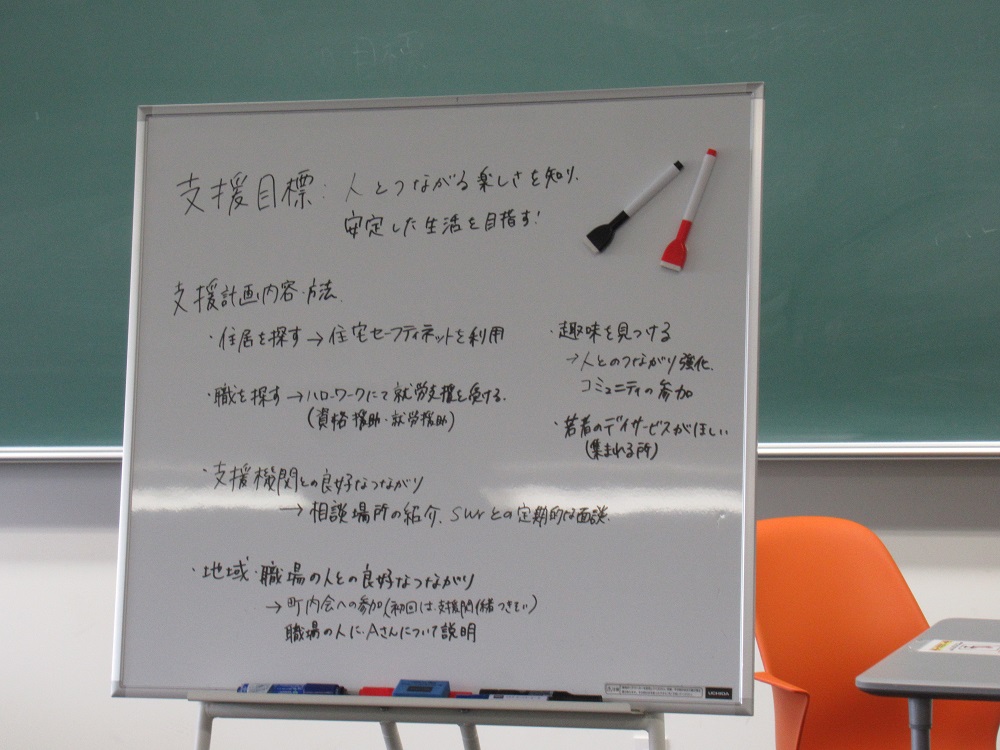 支援目標：人とつながる楽しさを知り、
安定した生活を目指す！
支援計画内容・方法
・住居を探す→住宅セーフティネットを利用
・職を探す→ハローワークにて就労支援を受ける。
(資格援助・就労援助)
・支援機関との良好なつながり
→相談場所の紹介、SWrとの定期的な面談。
・地域・職場の人との良好なつながり
→町内会への参加(初回は支援関係者
職場の人に、Aさんについて説明
・趣味を見つける
→人とのつながり強化、
コミュニティの参加
・若者のデイサービスがほしい
(集まれる所)
UCHIDA